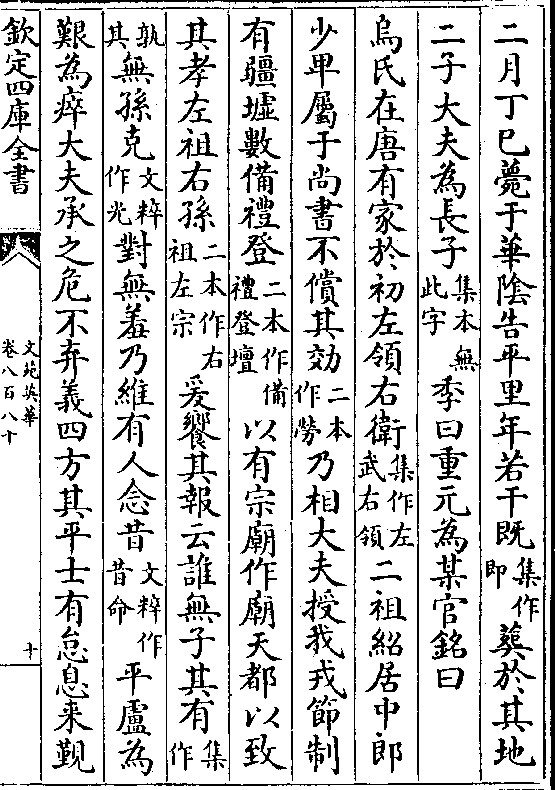 二月丁巳薨于華陰告平里年若干既集作即葬於其地
二子大夫為長子集本無此字季曰重元為某官銘曰
烏氏在唐有家於初左領右衛集作左武右領二祖紹居中郎
少卑屬于尚書不償其効二本作勞乃相大夫授我戎節制
有疆墟數備禮登二本作備禮登壇以有宗廟作廟天都以致
其孝左祖右孫二本作右祖左宗爰饗其報云誰無子其有集作
孰其無孫克文粹作光對無羞乃維有人念昔文粹作昔命平盧為
艱為瘁大夫承之危不弃義四方其平士有怠息来覲
欽定四庫全書
文苑英華
卷八百八十
十